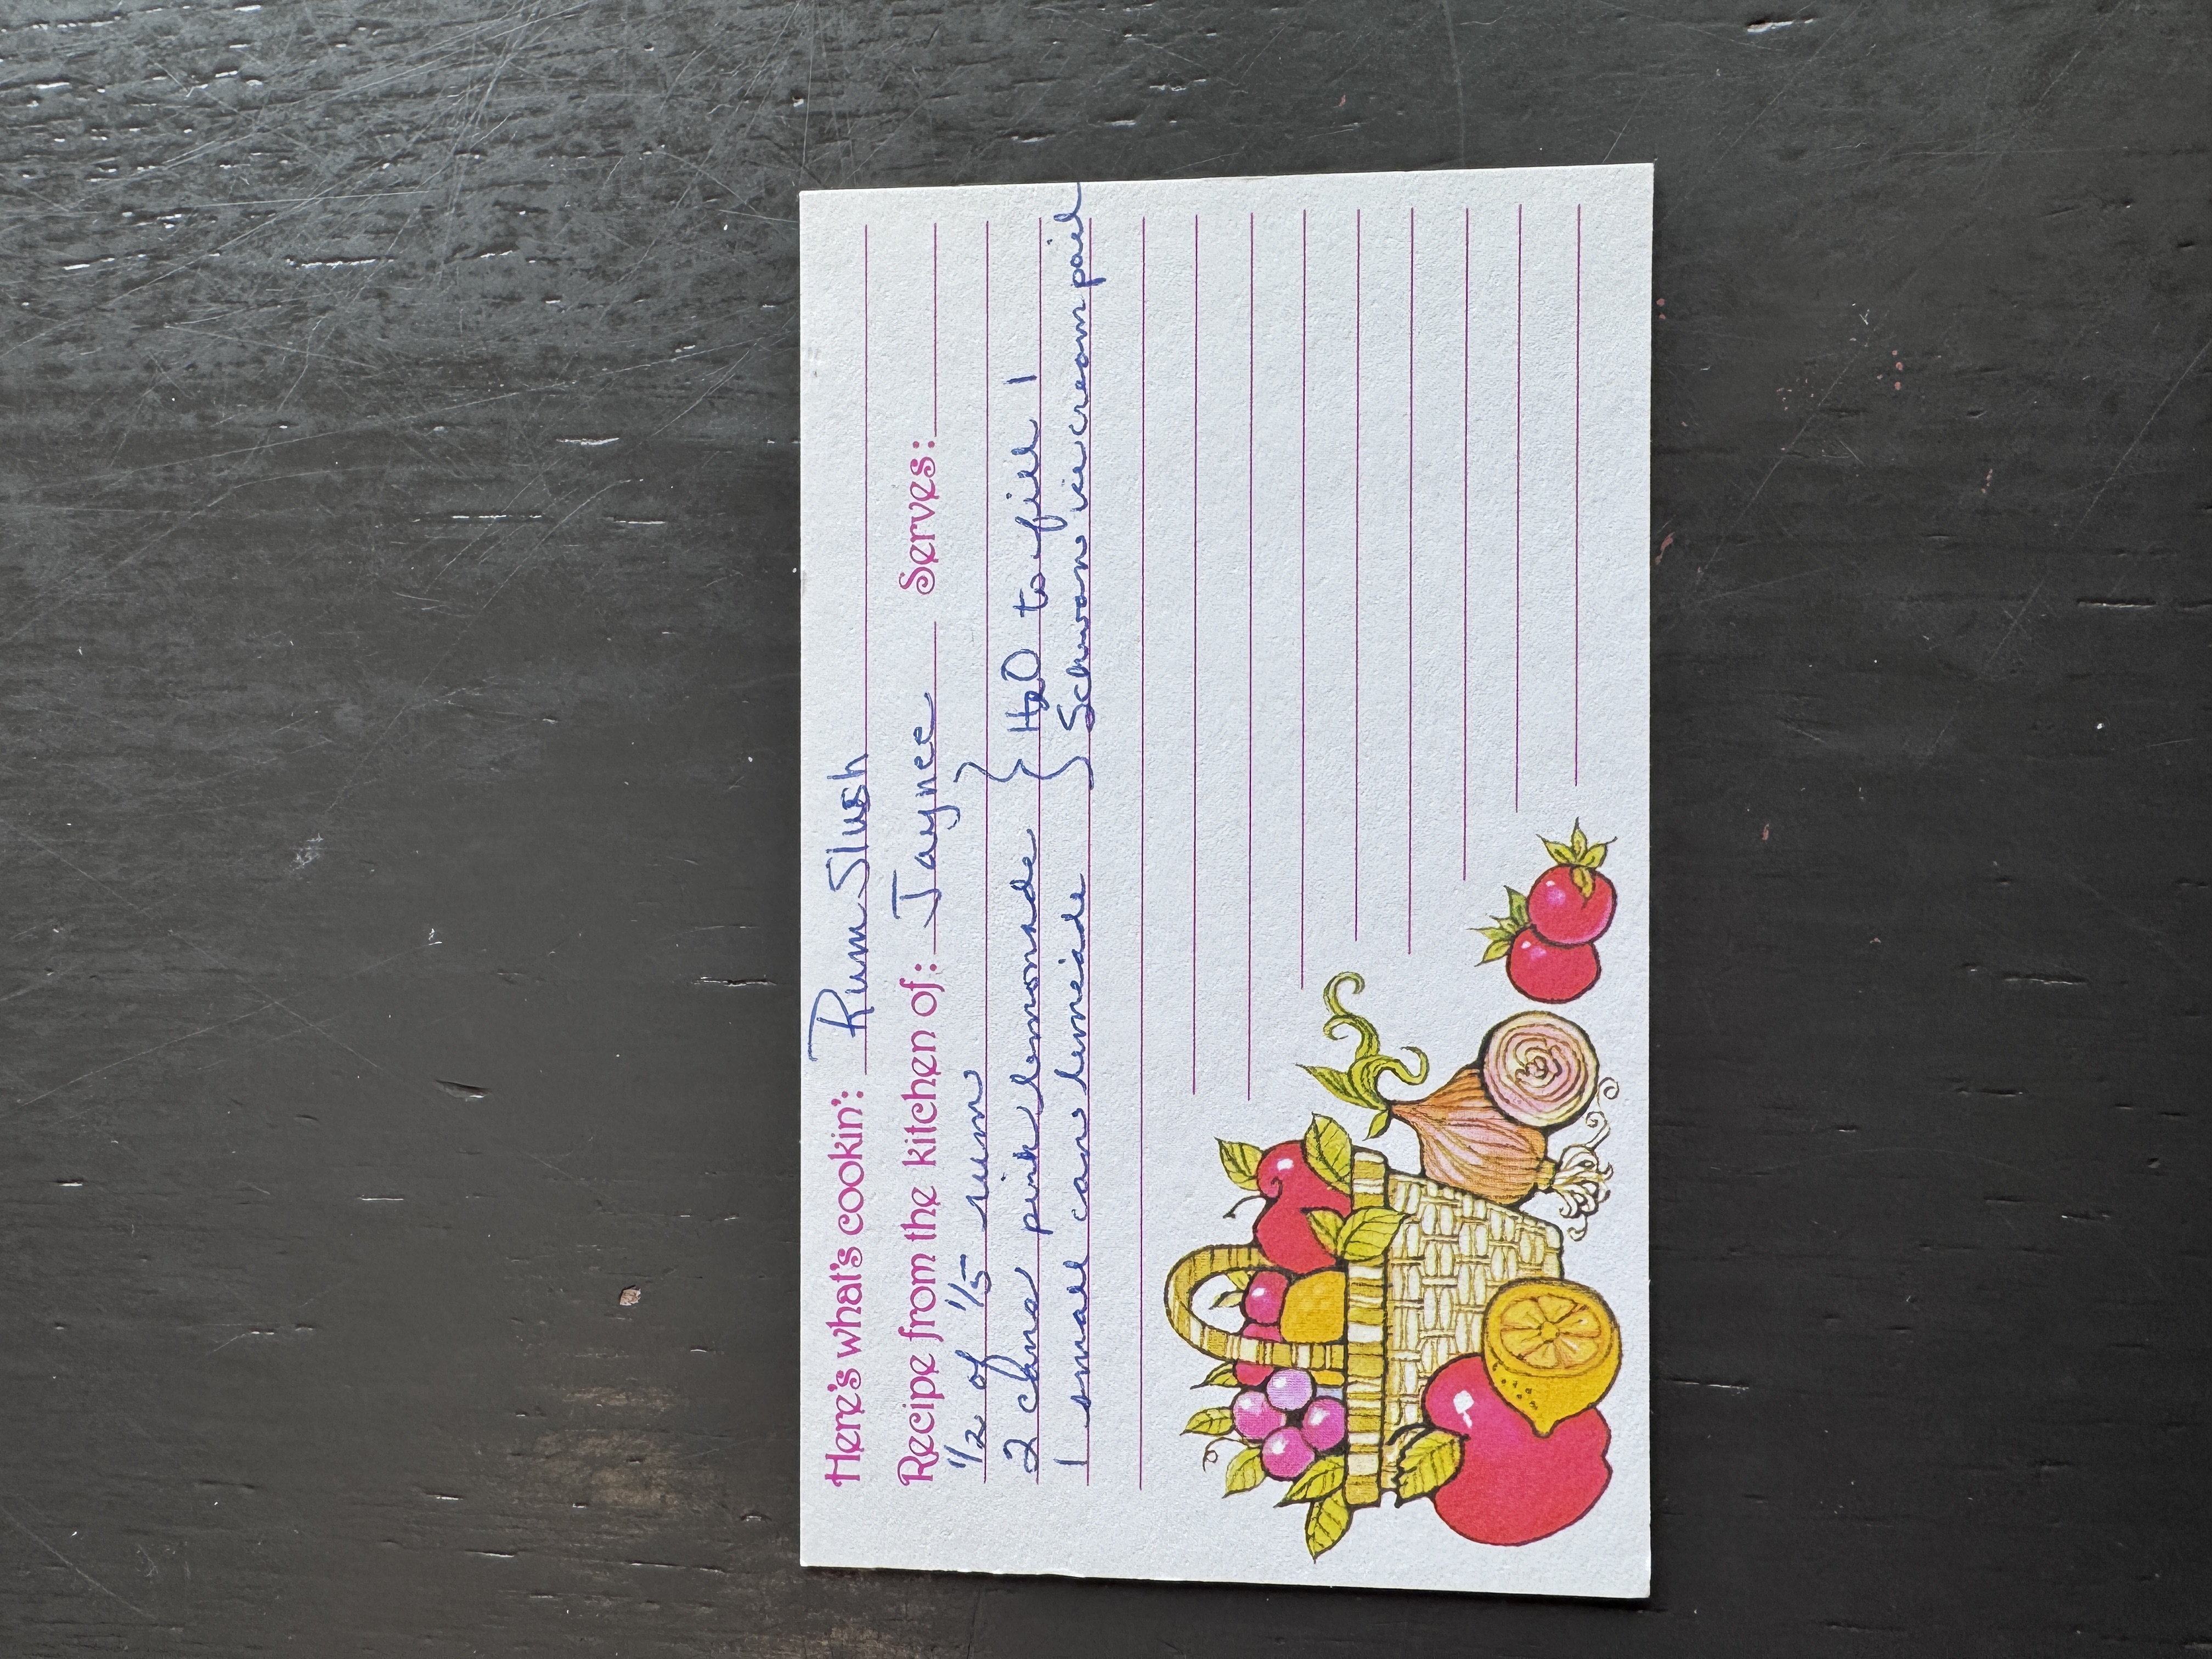 Here's what's cookin': Rum Slush
Recipe from the kitchen of: Jaynee Serves:
1/2 of 1/5 rum
2 cans pink lemonade } H2O to fill 1
1 small can limeade } Schwan ice cream pail